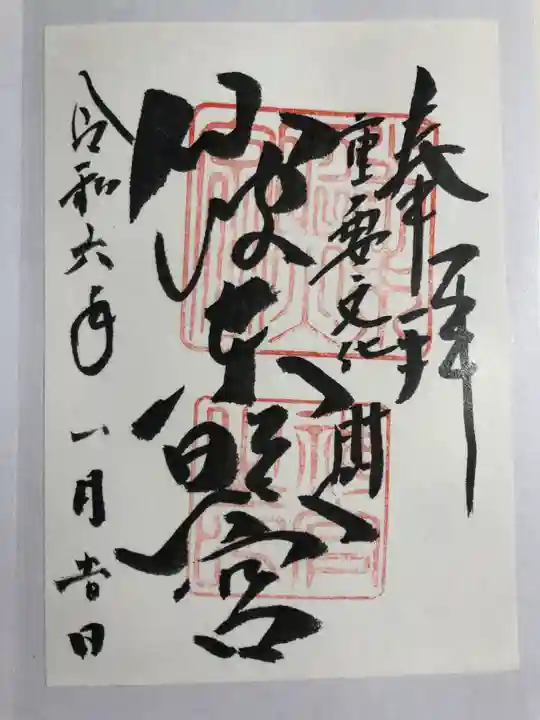 奉拝
重要文化財
仙波東照宮
令和六年 一月吉日